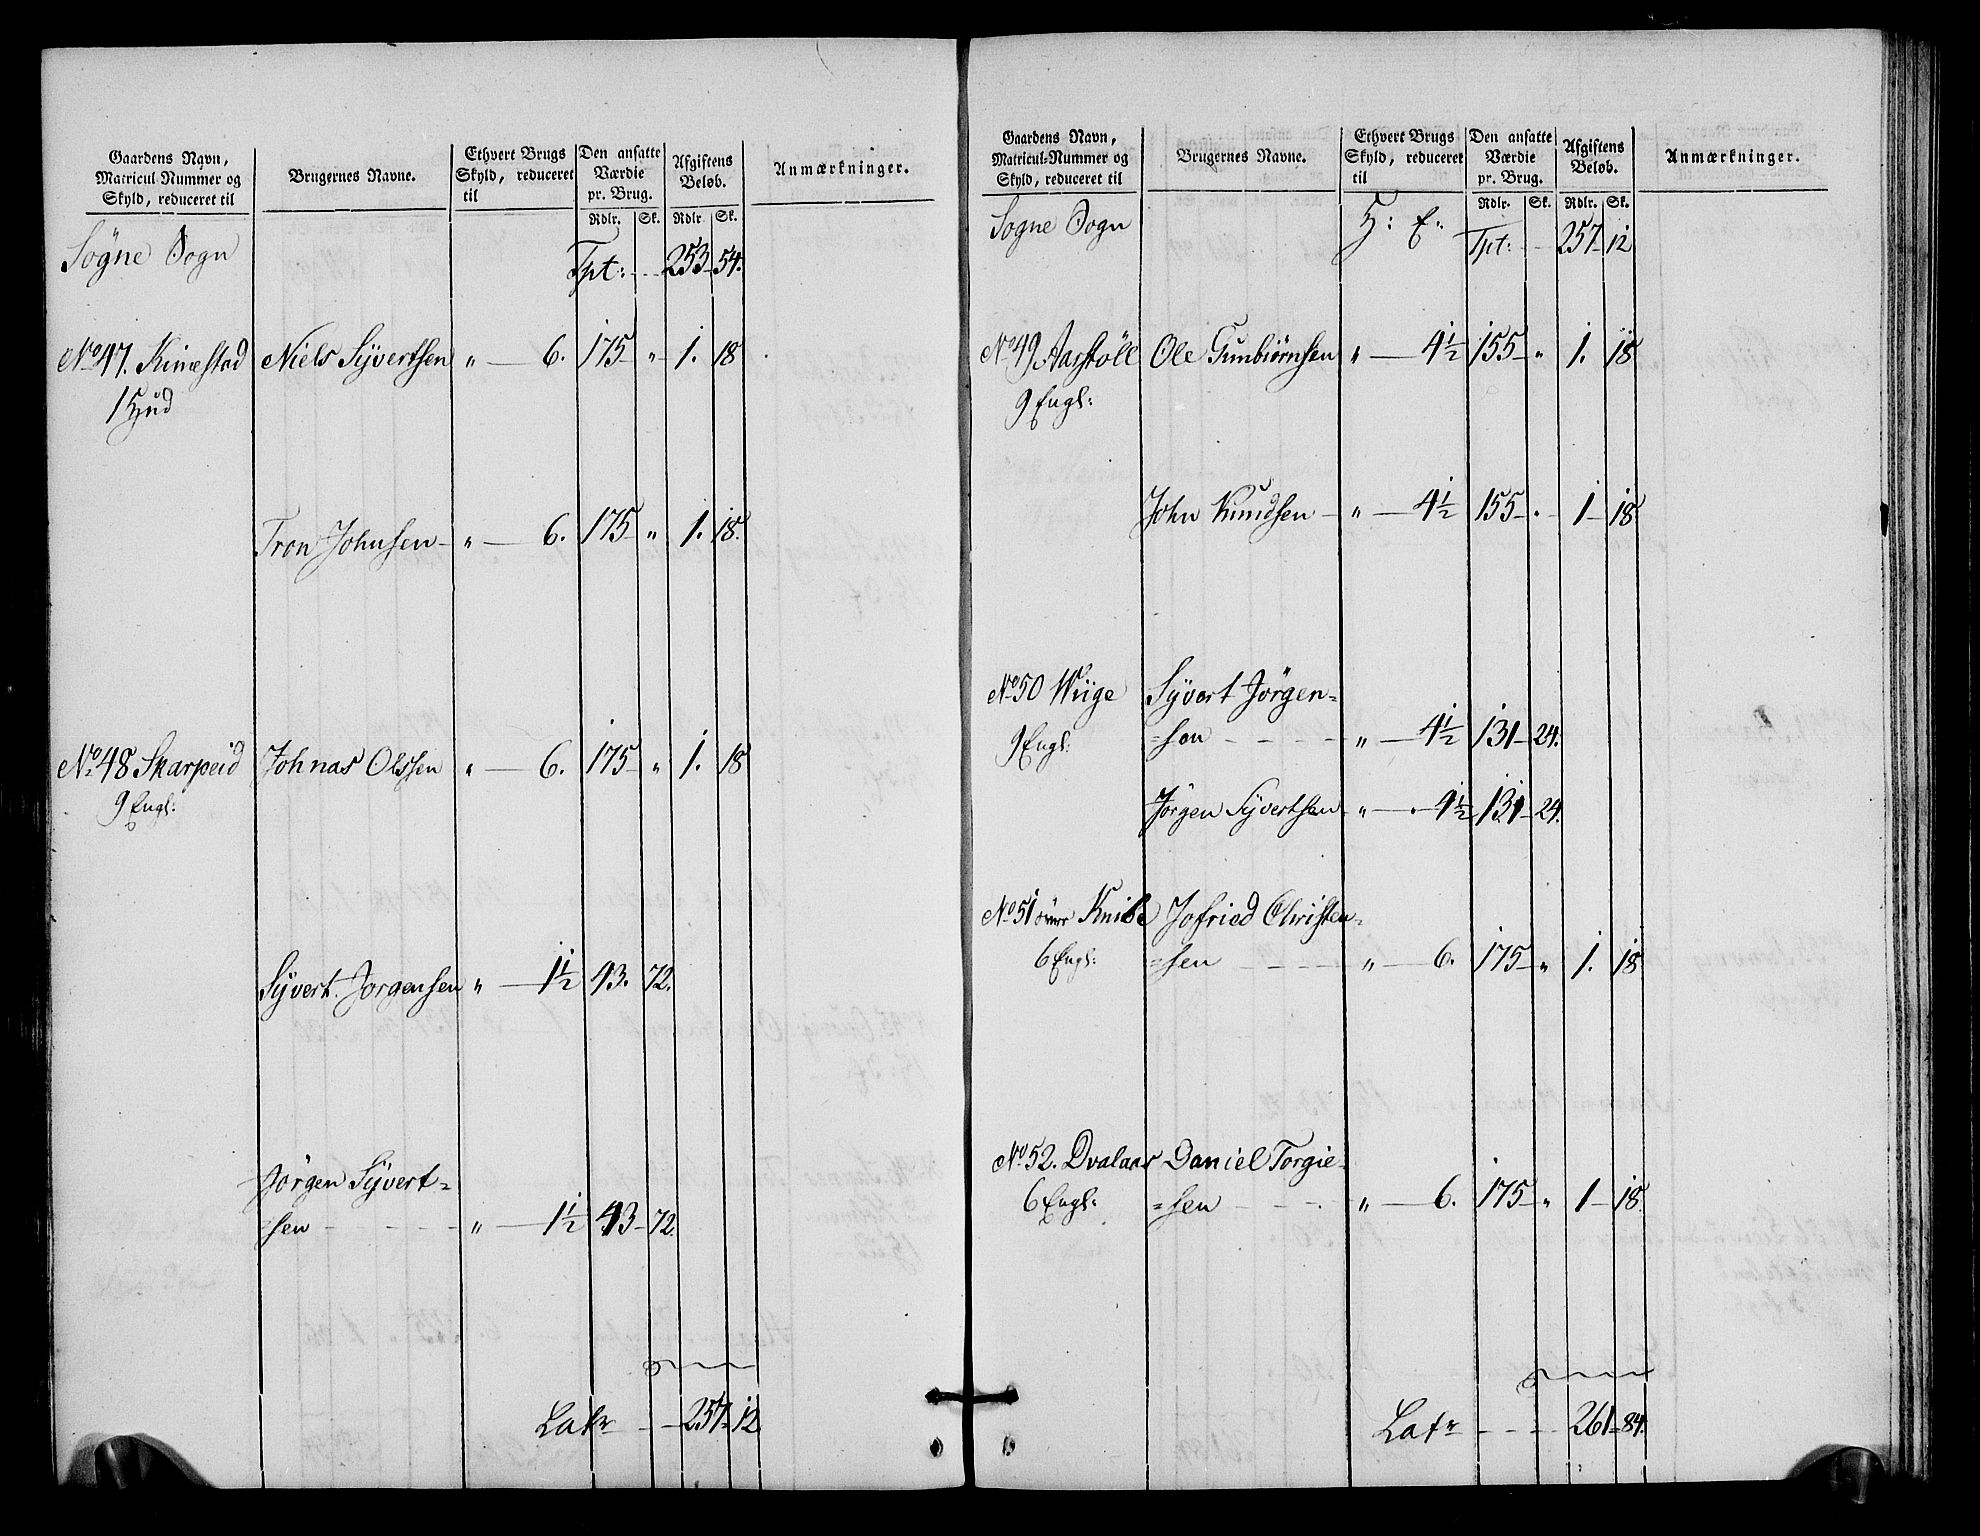 Gaardens Navn,
Matricul-Nummer og
Skyld, reduceret til
Brugernes Navne.
Ethvert Brugs
Skyld, reduceret
til
Den ansatte
Værdie
pr. Brug.
Afgiftens
Beløb.
Anmærkninger.
Rdlr. Sk. Rdlr. Sk.
Sögne Sogn Tpt: - - 253 - 54.
No 47. Kinestad Niels Syvertsen " — 6. 175 - " - 1. 18
1 Hud
Tron Johnsen - " — 6. 175 - " 1. 18.
No 48 Skarpeid Johnas Olssen " — 6. 175 - " 1. 18
9 Engl:
Syvert Jorgensen " — 1½ 43. 72.
Jörgen Syvert=
=sen - - - - " — 1½ 43 - 72.
Lat - - 257 - 12
Gaardens Navn,
Matricul-Nummer og
Skyld, reduceret til
Brugernes Navne.
Ethvert Brugs
Skyld, reduceret
til
Den ansatte
Værdie
pr. Brug.
Afgiftens
Beløb.
Anmærkninger.
Rdlr. Sk. Rdlr. Sk.
Sogne Sogn H: E: Tpt: - - 257 - 12
No 49 Aarstöll Ole Gunbiørnsen " — 4½ 155 - " 1. 18
9 Engl:
John Knudsen - " — 4½ 155 - " - 1 - 18
No 50 Wiige Syvert Jörgen=
9 Engl: =sen - - - - " — 4½ 131 - 24.
Jörgen Syvertsen - " — 4½ 131 - 24.
No 51 övre Knibe Jofried Christen=
6 Engl: =sen - - - - " — 6. 175 - " 1. 18
No 52. Dvalaas Daniel Torgie=
6 Engl: =sen - - - " — 6. 175 - " 1 - 18.
Lat - - - - 261 - 84.